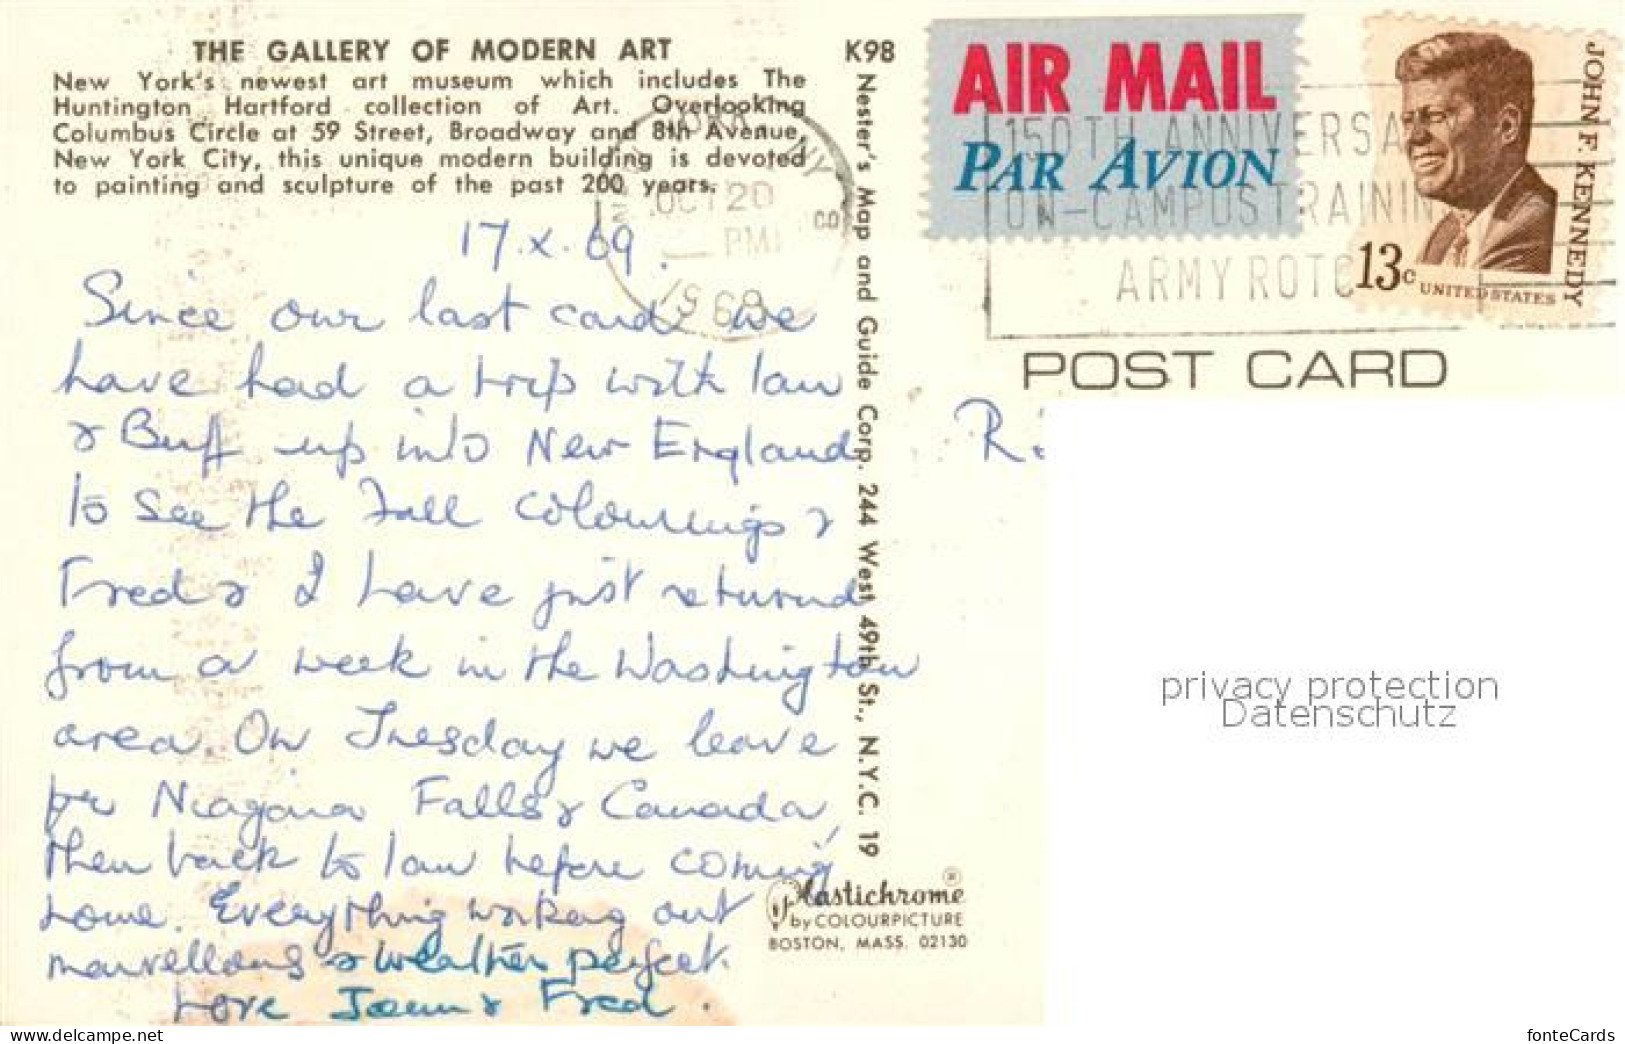 THE GALLERY OF MODERN ART
New York's newest art museum which includes The
Huntington Hartford collection of Art. Overlooking
Columbus Circle at 59 Street, Broadway and 8th Avenue,
New York City, this unique modern building is devoted
to painting and sculpture of the past 200 years.
17.X.69.
Since our last card we
have had a trip with Ian
& Buff up into New England
to see the Fall colourings &
Fred & I have just returned
from a week in the Washington
area. On Tuesday we leave
for Niagara Falls & Canada,
then back to Ian before coming
home. Everything working out
marvellous & weather perfect.
Love Joan & Fred.
K98
Nester's Map and Guide Corp. 244 West 49th St., N.Y.C. 19
Plastichrome ®
by COLOURPICTURE
BOSTON, MASS. 02130
AIR MAIL
PAR AVION
NY
OCT 20
PM
1969
150TH ANNIVERSA
ON-CAMPUS TRAININ
ARMY ROTC
JOHN F. KENNEDY
13c UNITED STATES
POST CARD
R
privacy protection
Datenschutz
www.delcampe.net
fonteCards